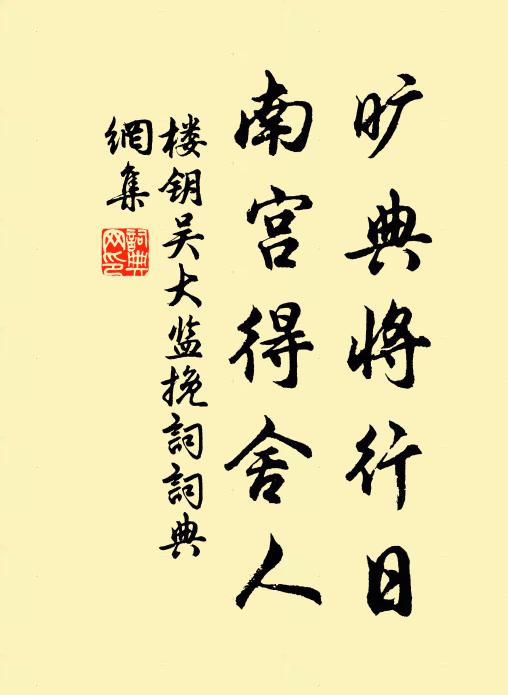 旷典将行日
南宫得舍人
楼钥吴大监挽詞詞典
網集
詞典网印